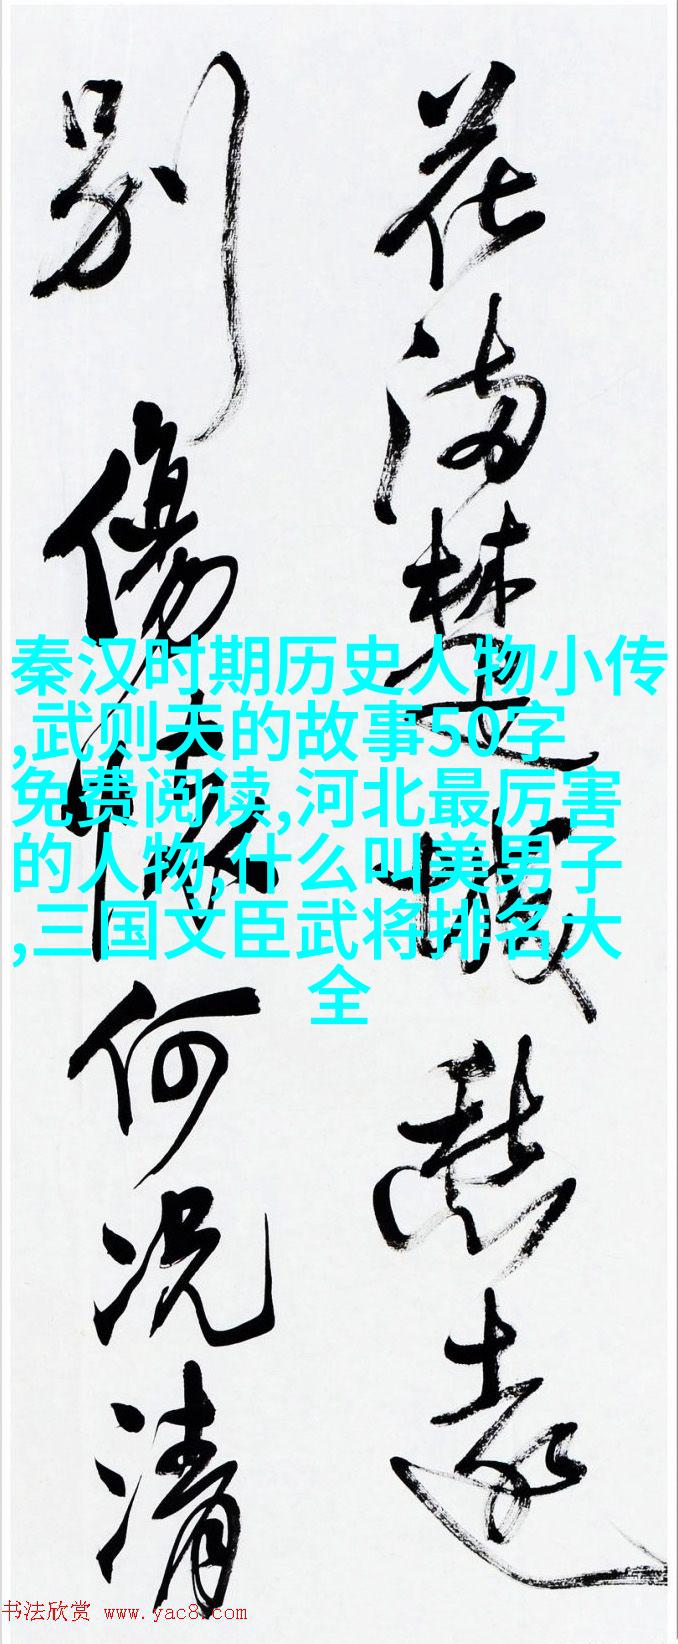 花滿楚城愁遠
别傷懷何况清
秦汉时期历史人物小传
,武则天的故事50字
免费阅读,河北最厉害
的人物,什么叫美男子
,三国文臣武将排名大
全
书法欣赏 www.yac8.com